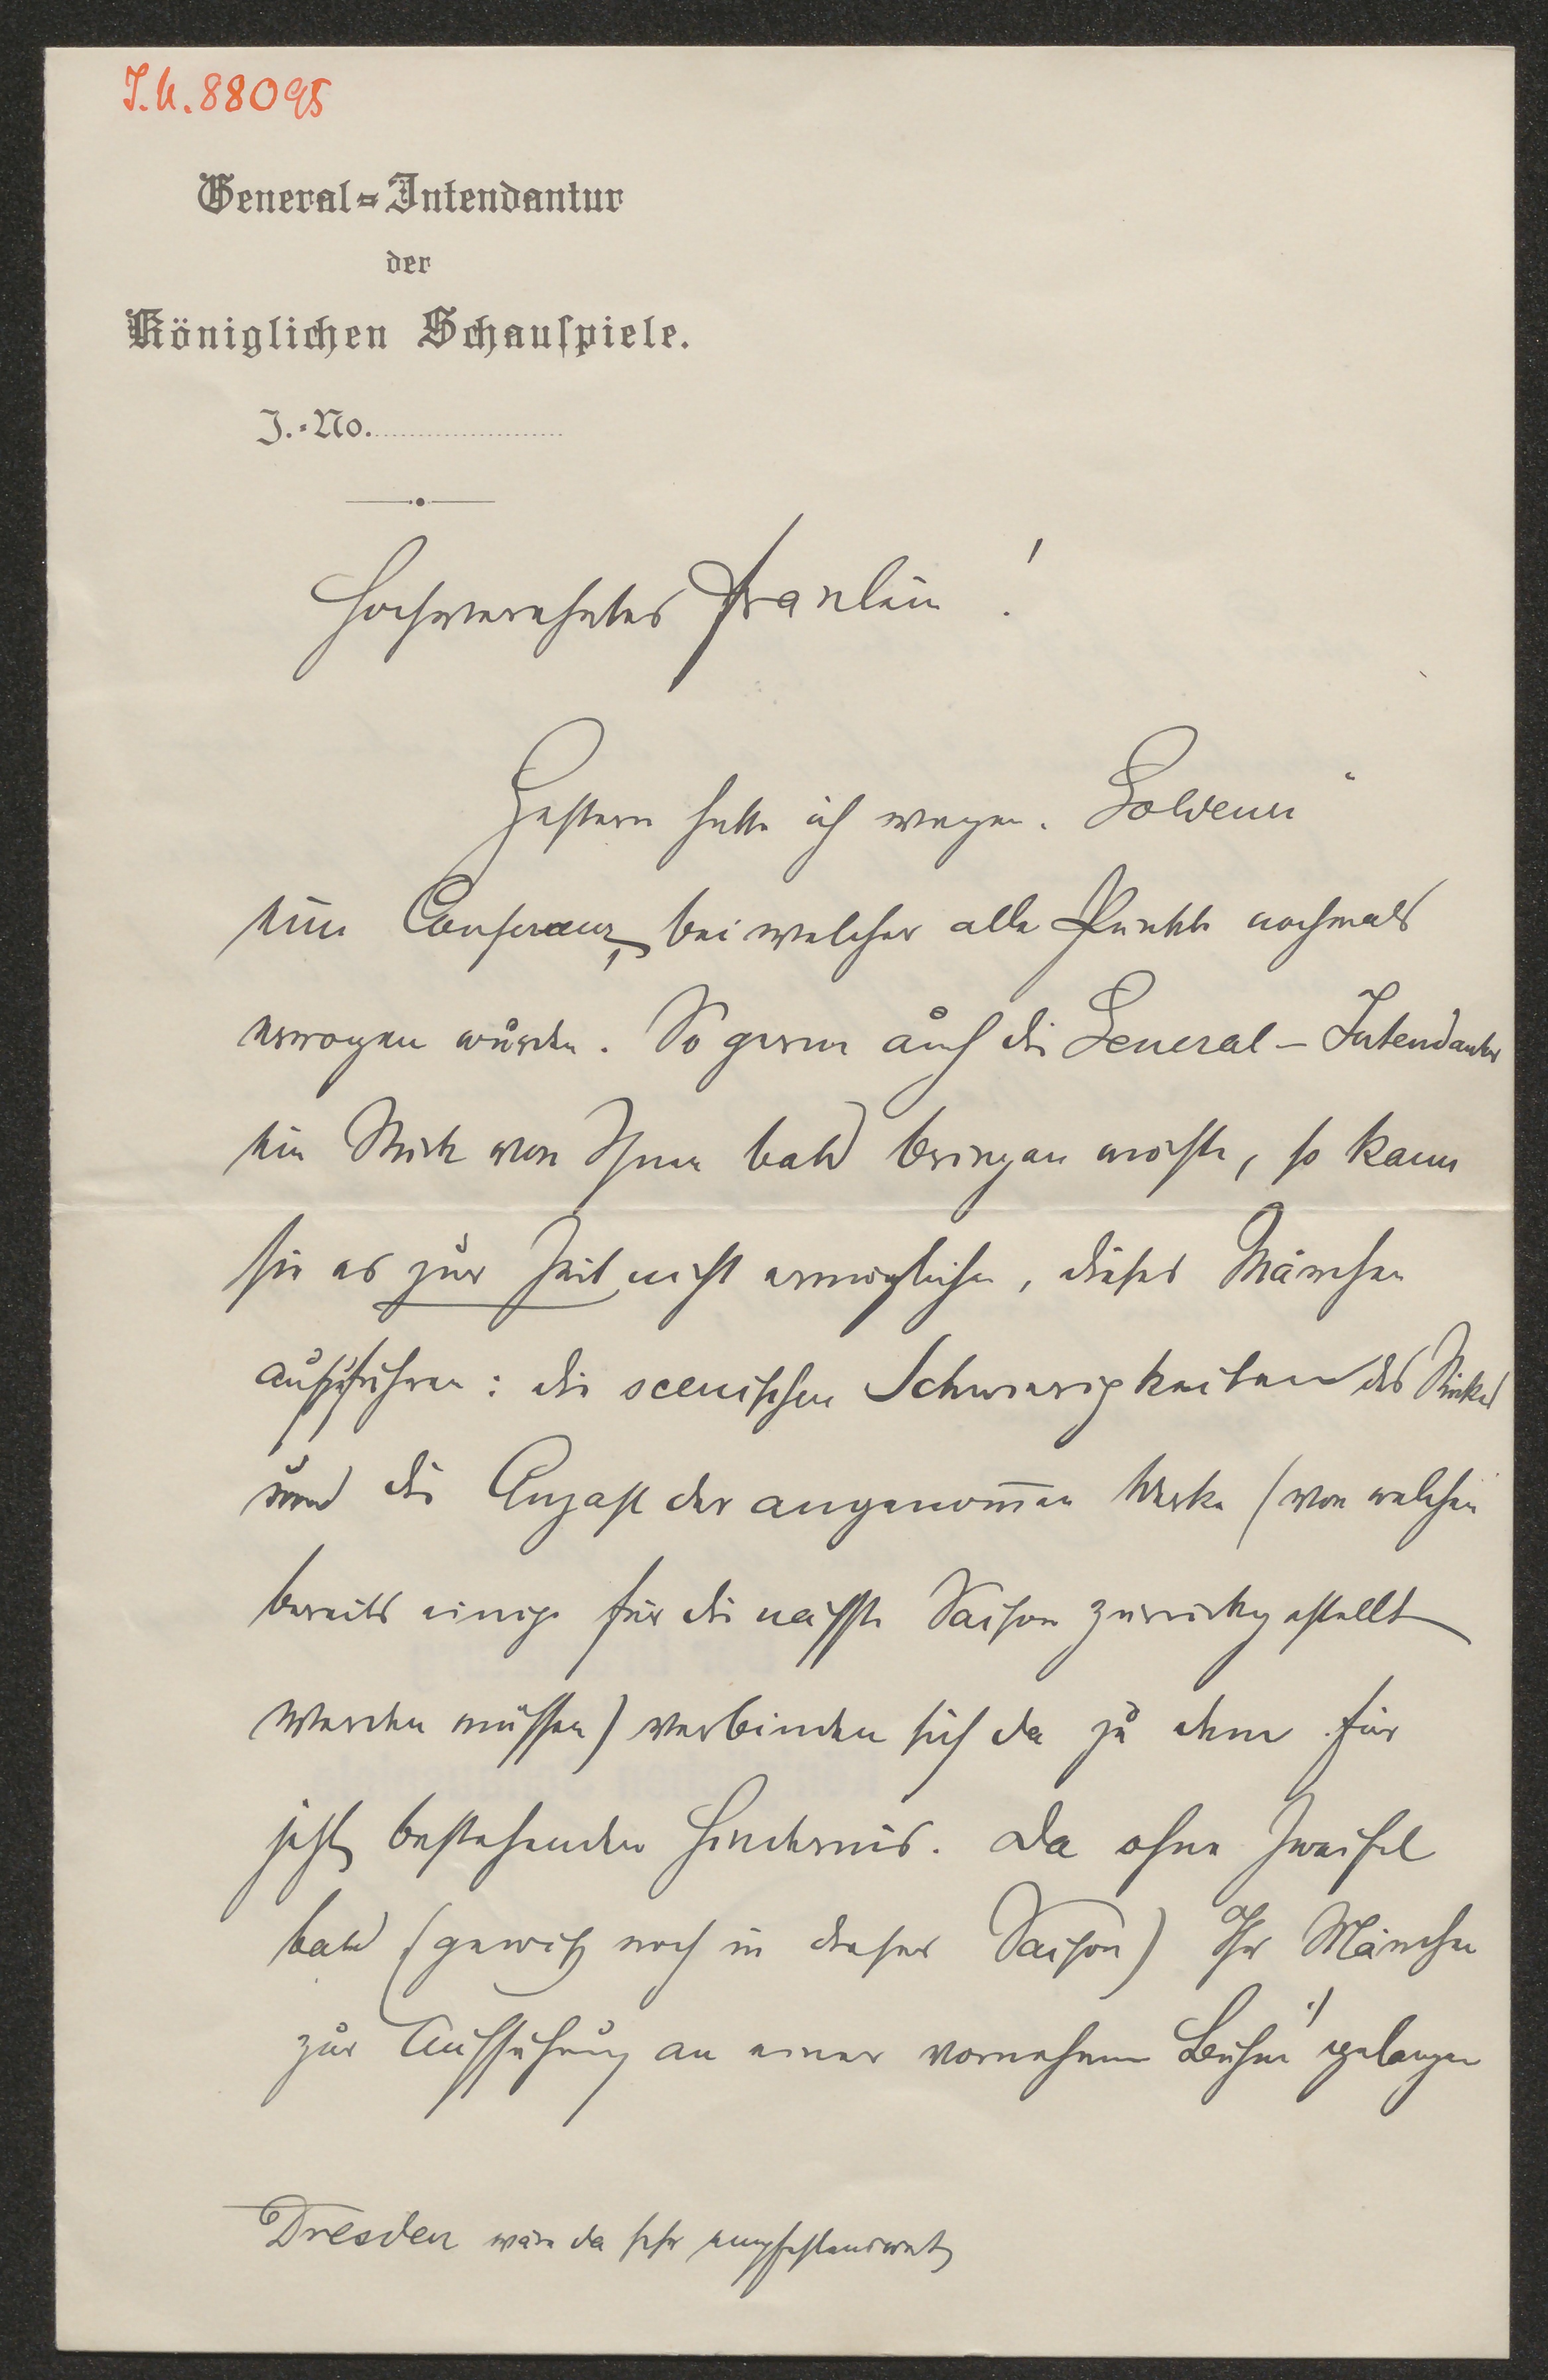 I.N. 88095
General=Intendantur
der
Königlichen Schauspiele.
J.=No.
Hochverehrtes Fraulein!
Gestern hatte ich wegen „Goldener“
eine Conferenz, bei welcher alle Punkte nochmals
erwogen wurden. So gerne auch die General-Intendantur
ein Stück von Ihnen bald bringen möchte, so kann
sie es zur Zeit nicht ermöglichen, dieses Märchen
aufzuführen: die scenischen Schwierigkeiten des Stückes
und die Anzahl der angenom̅enen Werke (von welchen
bereits einige für die nächste Saison zurückgestellt
werden müssen) verbinden sich da zu dem für
jetzt bestehenden Hindernis. Da ohne Zweifel
bald (gewiß noch in dieser Saison) Ihr Märchen
zur Aufführung an einer vornehmen Bühne gelangen
Dresden wäre da sehr empfehlenswert